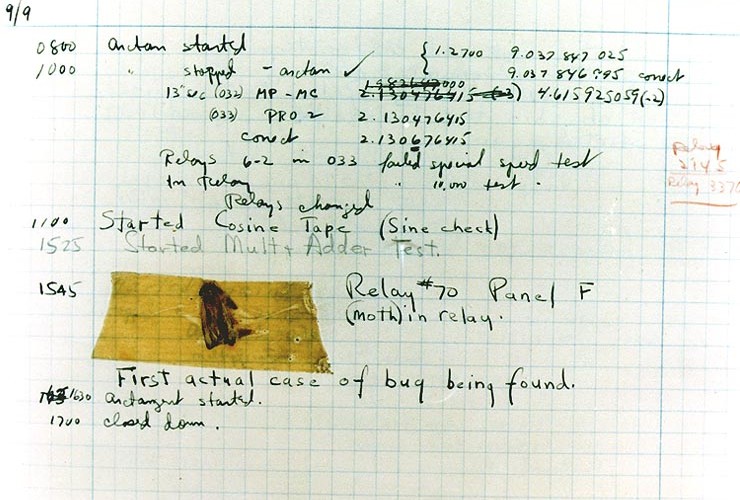 9/9
0800 arctan started { 1.2700 9.037 847 025
1000 " stopped - arctan ✓ 9.037 846 995 correct
13"uc (032) MP-MC 2.130476415 (-3) 4.615925059(-2)
(033) PRO 2 2.130476415
correct 2.130676415
Relays 6-2 in 033 failed special speed test
In Relay " 10,000 test.
Relay
Relay 3370
Relays changed
1100 Started Cosine Tape (Sine check)
1525 Started Mult+ Adder Test.
1545 Relay #70 Panel F
(moth) in relay.
First actual case of bug being found.
1630 arctangent started.
1700 closed down.